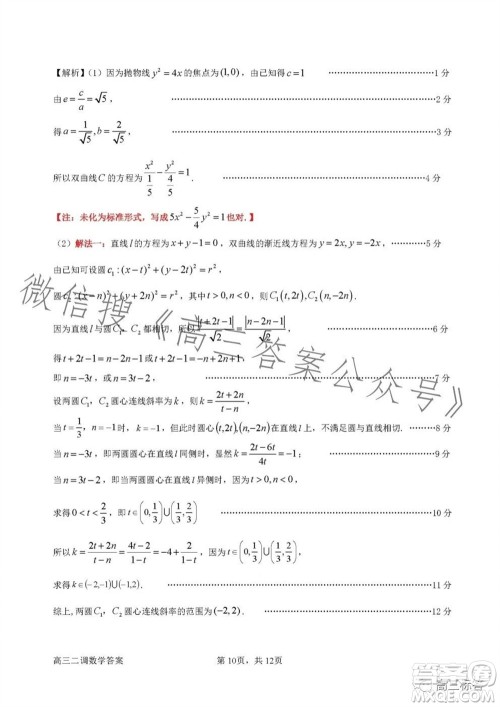 【解析】（1）因为抛物线 y²=4x 的焦点为(1,0)，由已知得 c=1 ……1 分
由 e=c/a=√5， ……2 分
得 a=1/√5, b=2/√5 ……3 分
所以双曲线 C 的方程为 x²/(1/5) - y²/(4/5) = 1 . ……4 分
【注：未化为标准形式，写成 5x² - (5/4)y² = 1 也对.】
（2）解法一：直线 l 的方程为 x+y-1=0，双曲线的渐近线方程为 y=2x, y=-2x， ……5 分
由已知可设圆 c₁:(x-t)²+(y-2t)²=r²,
圆 -n)²+(y+2n)²=r²，其中 t>0,n<0，则 C₁(t,2t),C₂(n,-2n).
因为直线 l 与圆 C₂ 都相切，所以 |t+2t-1|/√2 = |n-2n-1|/√2 ， ……6 分
得 t+2t-1=n-2n-1 或 t+2t-1=-n+2n+1,
即 n=-3t，或 n=3t-2， ……7 分
设两圆 C₁，C₂ 圆心连线斜率为 k，则 k=(2t+2n)/(t-n),
当 t=1/3, n=-1 时，k=-1，但此时圆心(t,2t),(n,-2n)在直线 l 上，不满足圆与直线相切. ……8 分
当 n=-3t 时，即两圆圆心在直线 l 同侧时，显然 k=(2t-6t)/4t=-1； ……9 分
当 n=3t-2，即两圆圆心在直线 l 异侧时，因为 t>0,n<0，
求得 0<t<2/3，即 t∈(0,1/3)∪(1/3,2/3) ……10 分
所以 k=(2t+2n)/(t-n)=(4t-2)/(1-t)=-4+2/(1-t)，因为 t∈(0,1/3)∪(1/3,2/3),
求得 k∈(-2,-1)∪(-1,2). ……11 分
综上,两圆 C₁，C₂ 圆心连线斜率的范围为(-2,2). ……12 分
高三二调数学答案 第 10页，共 12页
微信搜《高三答案公众号》
高三标答